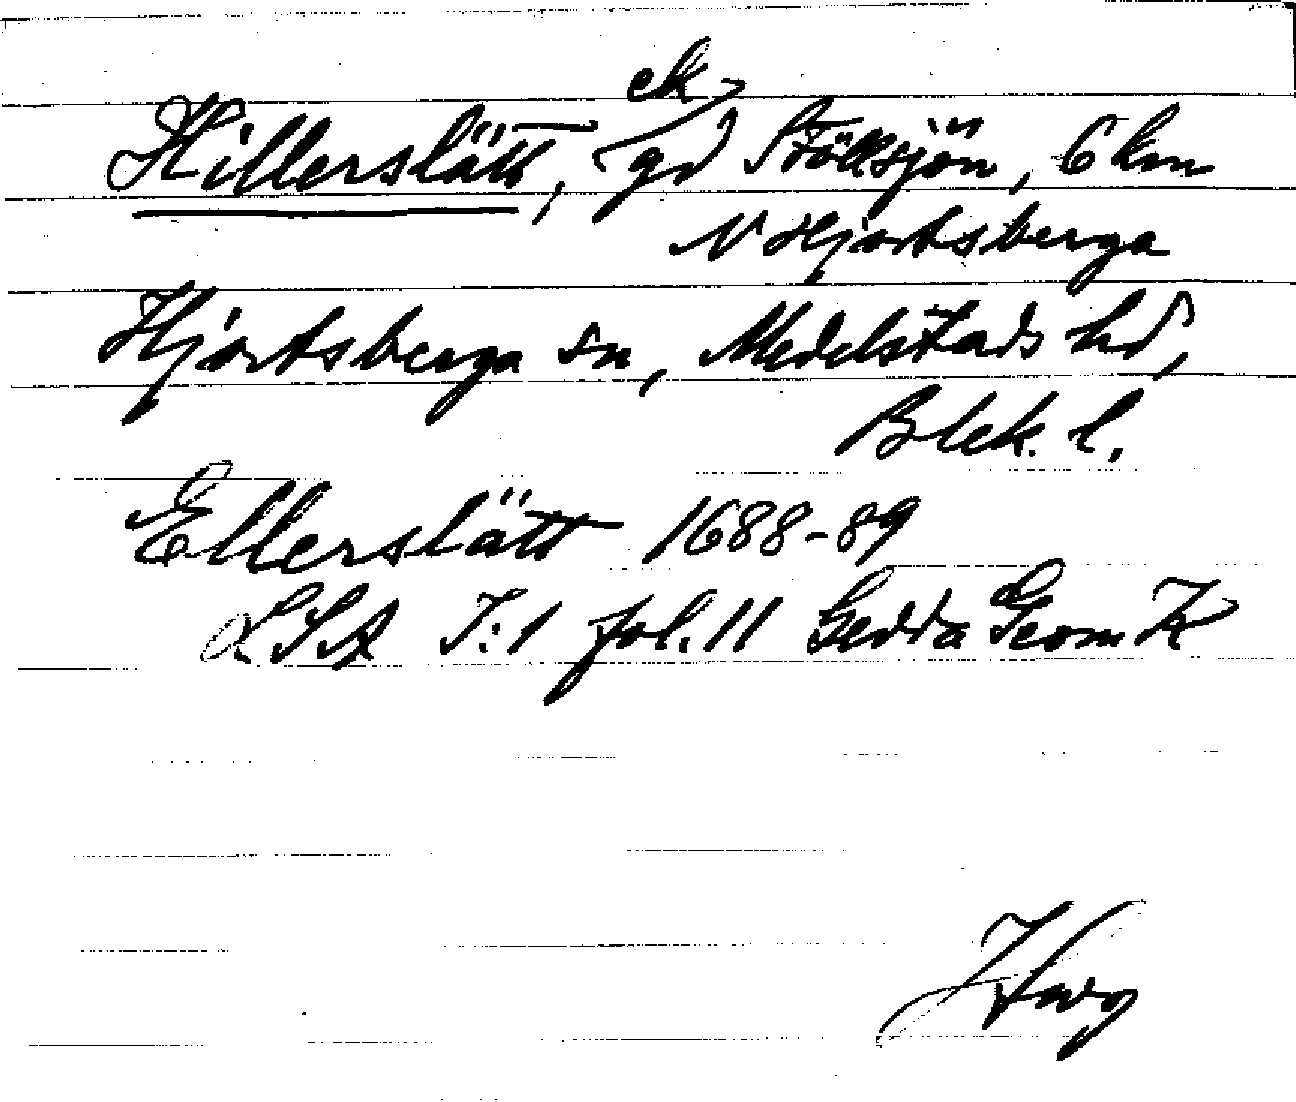 Hillerslätt, ek gd Stöllsjön, 6 km
N Hjortsberga
Hjortsberga sn, Medelstads hd,
Blek. l.
Ellerslätt 1688-89
LSA I:1 fol. 11 Gedda Geom K